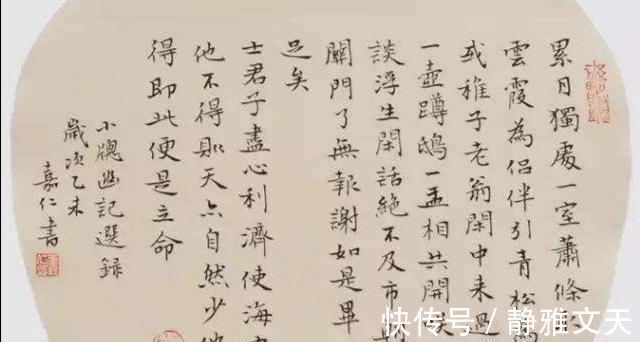 累月獨處一室蕭條
雲霞為侶伴引青松為
或稚子老翁閑中來過
一壺蹲鴟一盂相共開
談浮生閑話絕不及市
關門了無報謝如是畢
足矣
士君子盡心利濟使海
他不得則天亦自然少他
得即此便是立命
小牕幽記選録
歲次乙未
嘉仁書
快传号 / 静雅文天